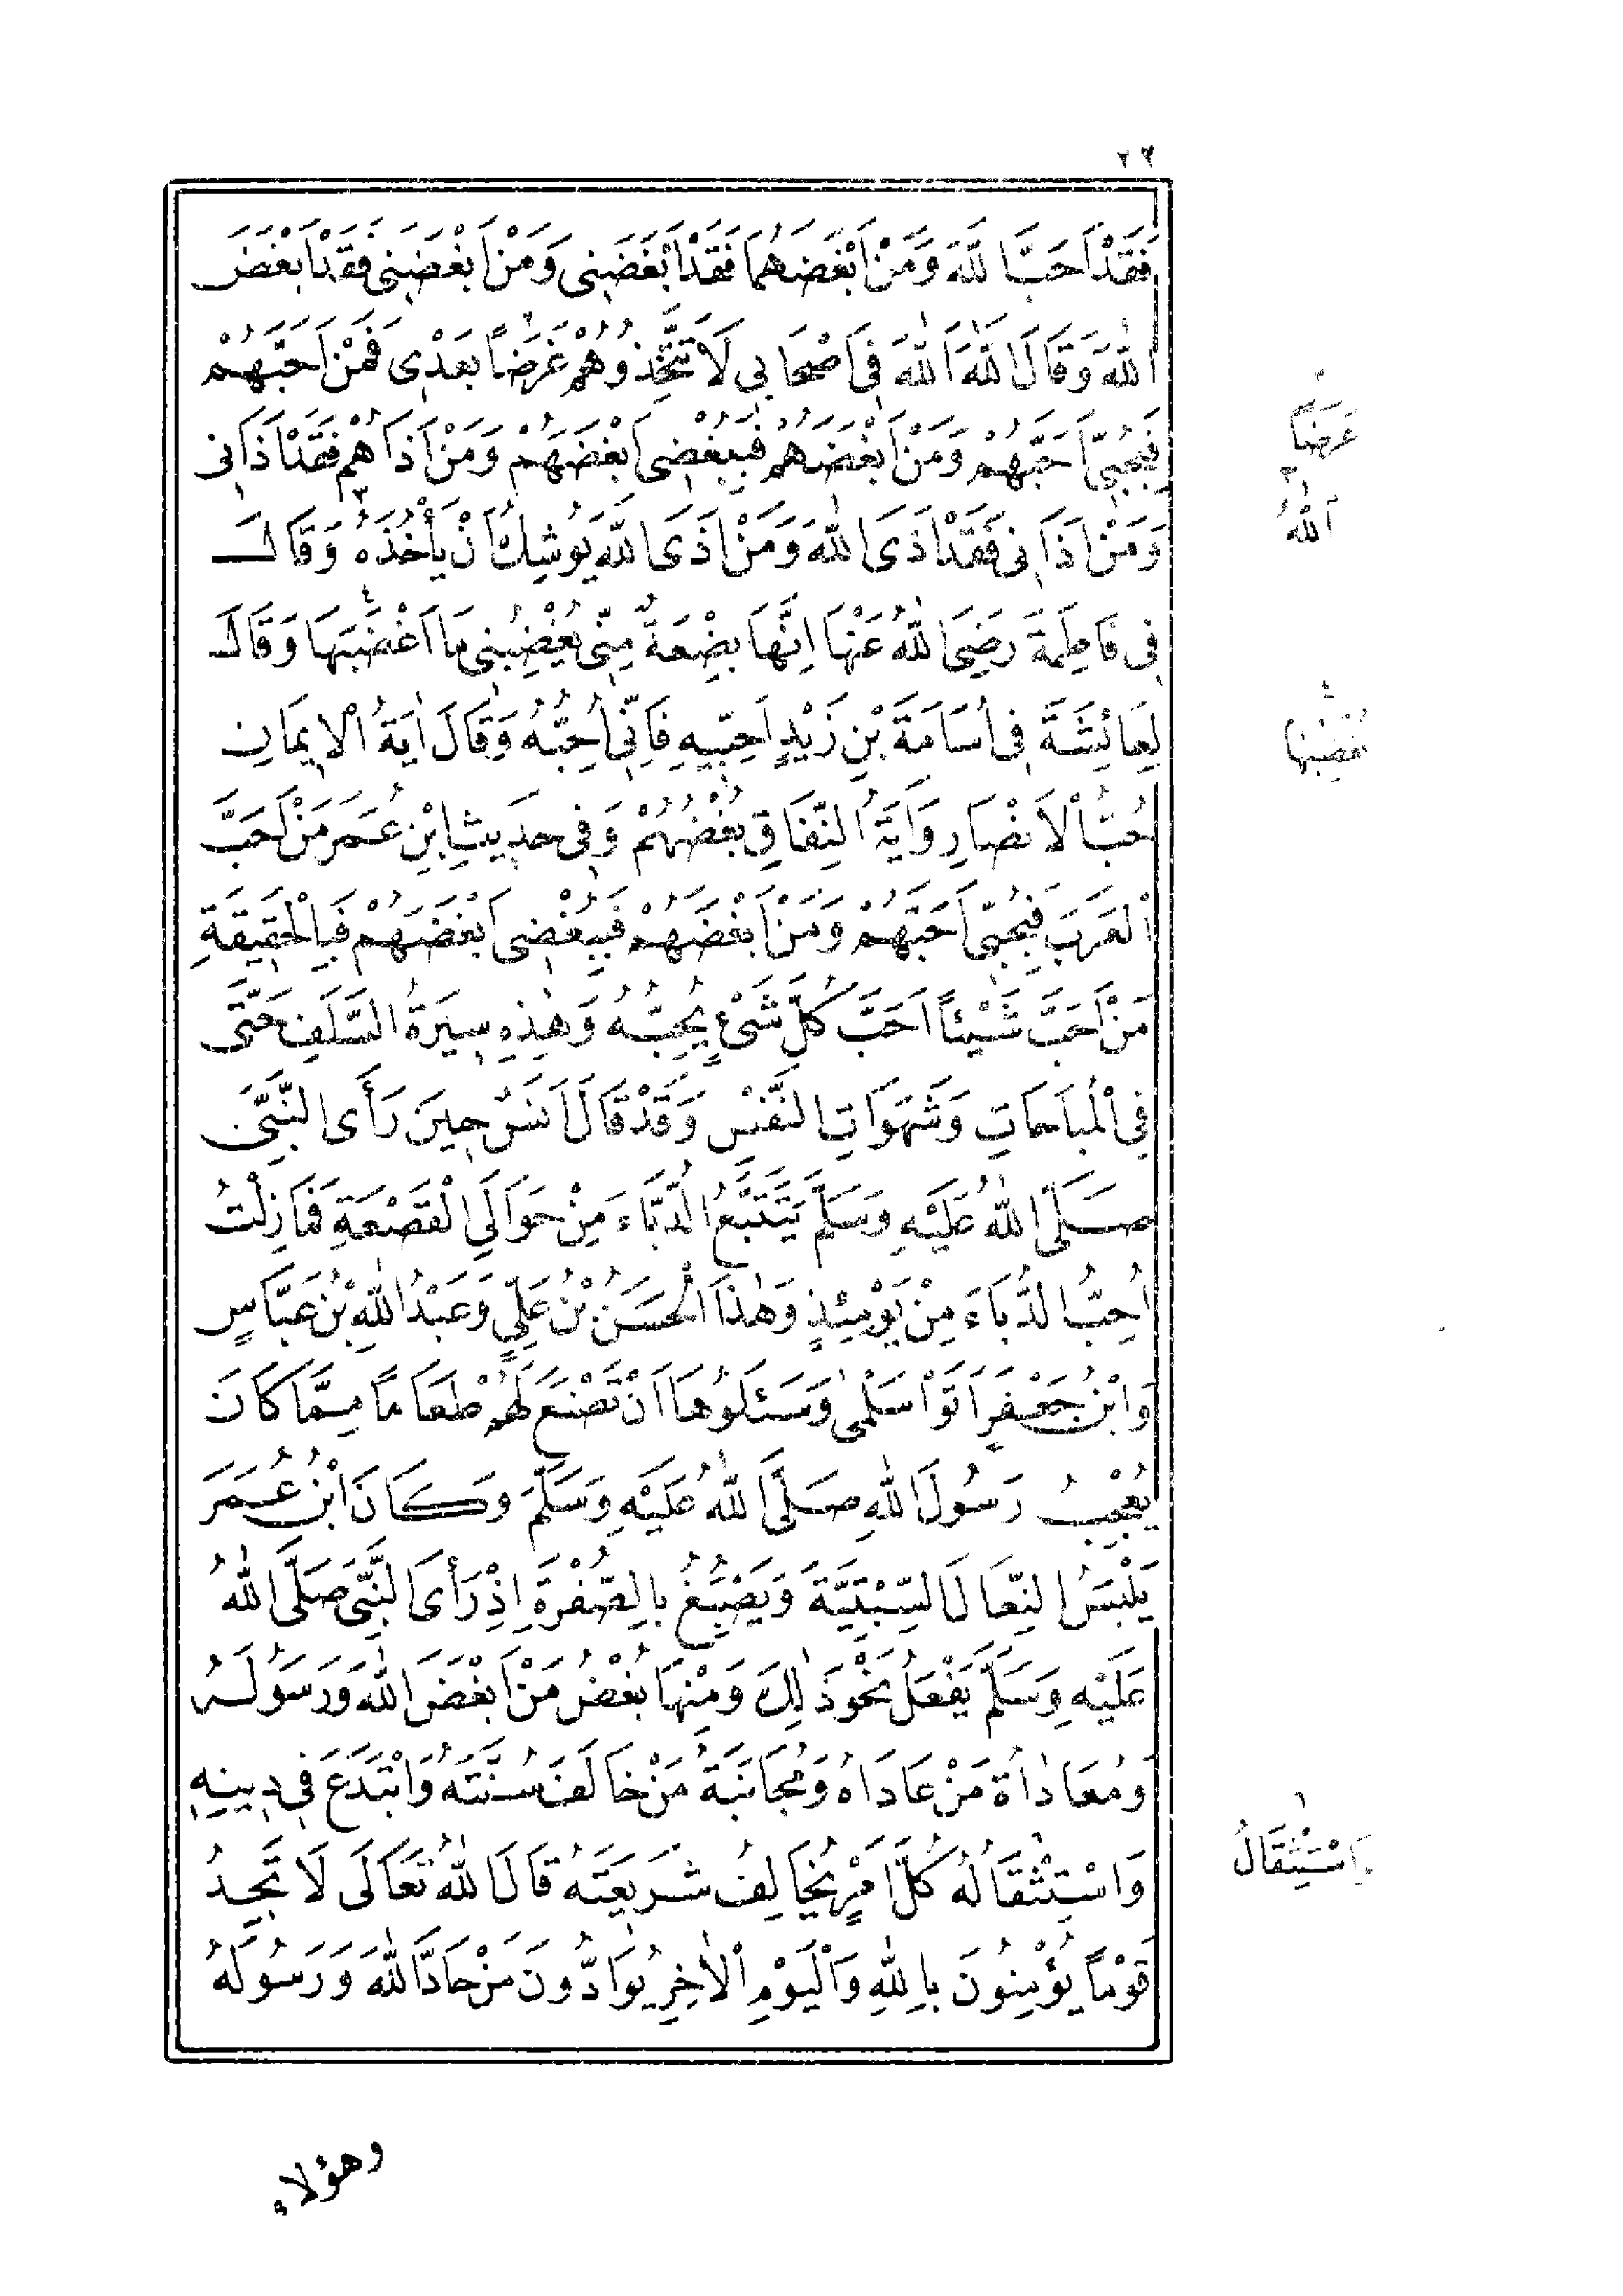 ٢٣
فَقَدْ اَحَبَّ اللّٰهَ وَمَنْ اَبْغَضَهُمَا فَقَدْ اَبْغَضَنِى وَمَنْ اَبْغَضَنِى فَقَدْ اَبْغَضَ
اللّٰهَ وَقَالَ اللّٰهَ اَللّٰهَ فِى اَصْحَابِى لَا تَتَّخِذُوهُمْ غَرَضًا بَعْدِى فَمَنْ اَحَبَّهُمْ
فَبِحُبِّى اَحَبَّهُمْ وَمَنْ اَبْغَضَهُمْ فَبِبُغْضِى اَبْغَضَهُمْ وَمَنْ اٰذَاهُمْ فَقَدْ اٰذَانِى
وَمَنْ اٰذَانِى فَقَدْ اٰذَى اللّٰهَ وَمَنْ اٰذَى اللّٰهَ يُوشِكُ اَنْ يَأْخُذَهُ ٣ وَقَالَ
فِى فَاطِمَةَ رَضِىَ اللّٰهُ عَنْهَا اِنَّهَا بَضْعَةٌ مِنِّى يُغْضِبُنِى مَا اَغْضَبَهَا ٤ وَقَالَ
لِعَائِشَةَ فِى اُسَامَةَ بْنِ زَيْدٍ اَحِبِّيهِ فَاِنِّى اُحِبُّهُ وَقَالَ اٰيَةُ الْاِيمَانِ
حُبُّ الْاَنْصَارِ وَاٰيَةُ النِّفَاقِ بُغْضُهُمْ وَفِى حَدِيثِ ابْنِ عُمَرَ مَنْ اَحَبَّ
الْعَرَبَ فَبِحُبِّى اَحَبَّهُمْ وَمَنْ اَبْغَضَهُمْ فَبِبُغْضِى اَبْغَضَهُمْ فَبِالْحَقِيقَةِ
مَنْ اَحَبَّ شَيْئًا اَحَبَّ كُلَّ شَىْءٍ يُحِبُّهُ وَهٰذِهِ سِيرَةُ السَّلَفِ حَتَّى
فِى الْمُبَاحَاتِ وَشَهَوَاتِ النَّفْسِ وَقَدْ قَالَ اَنَسٌ حِينَ رَأَى النَّبِىَّ
صَلَّى اللّٰهُ عَلَيْهِ وَسَلَّمَ يَتَتَبَّعُ الدُّبَّاءَ مِنْ حَوَالَىِ الْقَصْعَةِ فَمَا زِلْتُ
اُحِبُّ الدُّبَّاءَ مِنْ يَوْمِئِذٍ وَهٰذَا الْحَسَنُ بْنُ عَلِىٍّ وَعَبْدُ اللّٰهِ بْنُ عَبَّاسٍ
وَابْنُ جَعْفَرٍ اَتَوْا سَلْمٰى وَسَئَلُوهَا اَنْ تَصْنَعَ لَهُمْ طَعَامًا مِمَّا كَانَ
يُعْجِبُ رَسُولَ اللّٰهِ صَلَّى اللّٰهُ عَلَيْهِ وَسَلَّمَ وَكَانَ ابْنُ عُمَرَ
يَلْبَسُ النِّعَالَ السِّبْتِيَّةَ وَيَصْبَغُ بِالصُّفْرَةِ اِذْ رَأَى النَّبِىَّ صَلَّى اللّٰهُ
عَلَيْهِ وَسَلَّمَ يَفْعَلُ نَحْوَ ذٰلِكَ وَمِنْهَا بُغْضُ مَنْ اَبْغَضَ اللّٰهَ وَرَسُولَهُ
وَمُعَادَاةُ مَنْ عَادَاهُ وَمُجَانَبَةُ مَنْ خَالَفَ سُنَّتَهُ وَابْتَدَعَ فِى دِينِهِ
وَاسْتِثْقَالُهُ كُلَّ اَمْرٍ يُخَالِفُ شَرِيعَتَهُ قَالَ اللّٰهُ تَعَالَى لَا تَجِدُ
قَوْمًا يُؤْمِنُونَ بِاللّٰهِ وَالْيَوْمِ الْاٰخِرِ يُوَادُّونَ مَنْ حَادَّ اللّٰهَ وَرَسُولَهُ
اَللّٰهُ
وَاسْتِثْقَالُ
وهؤلاء